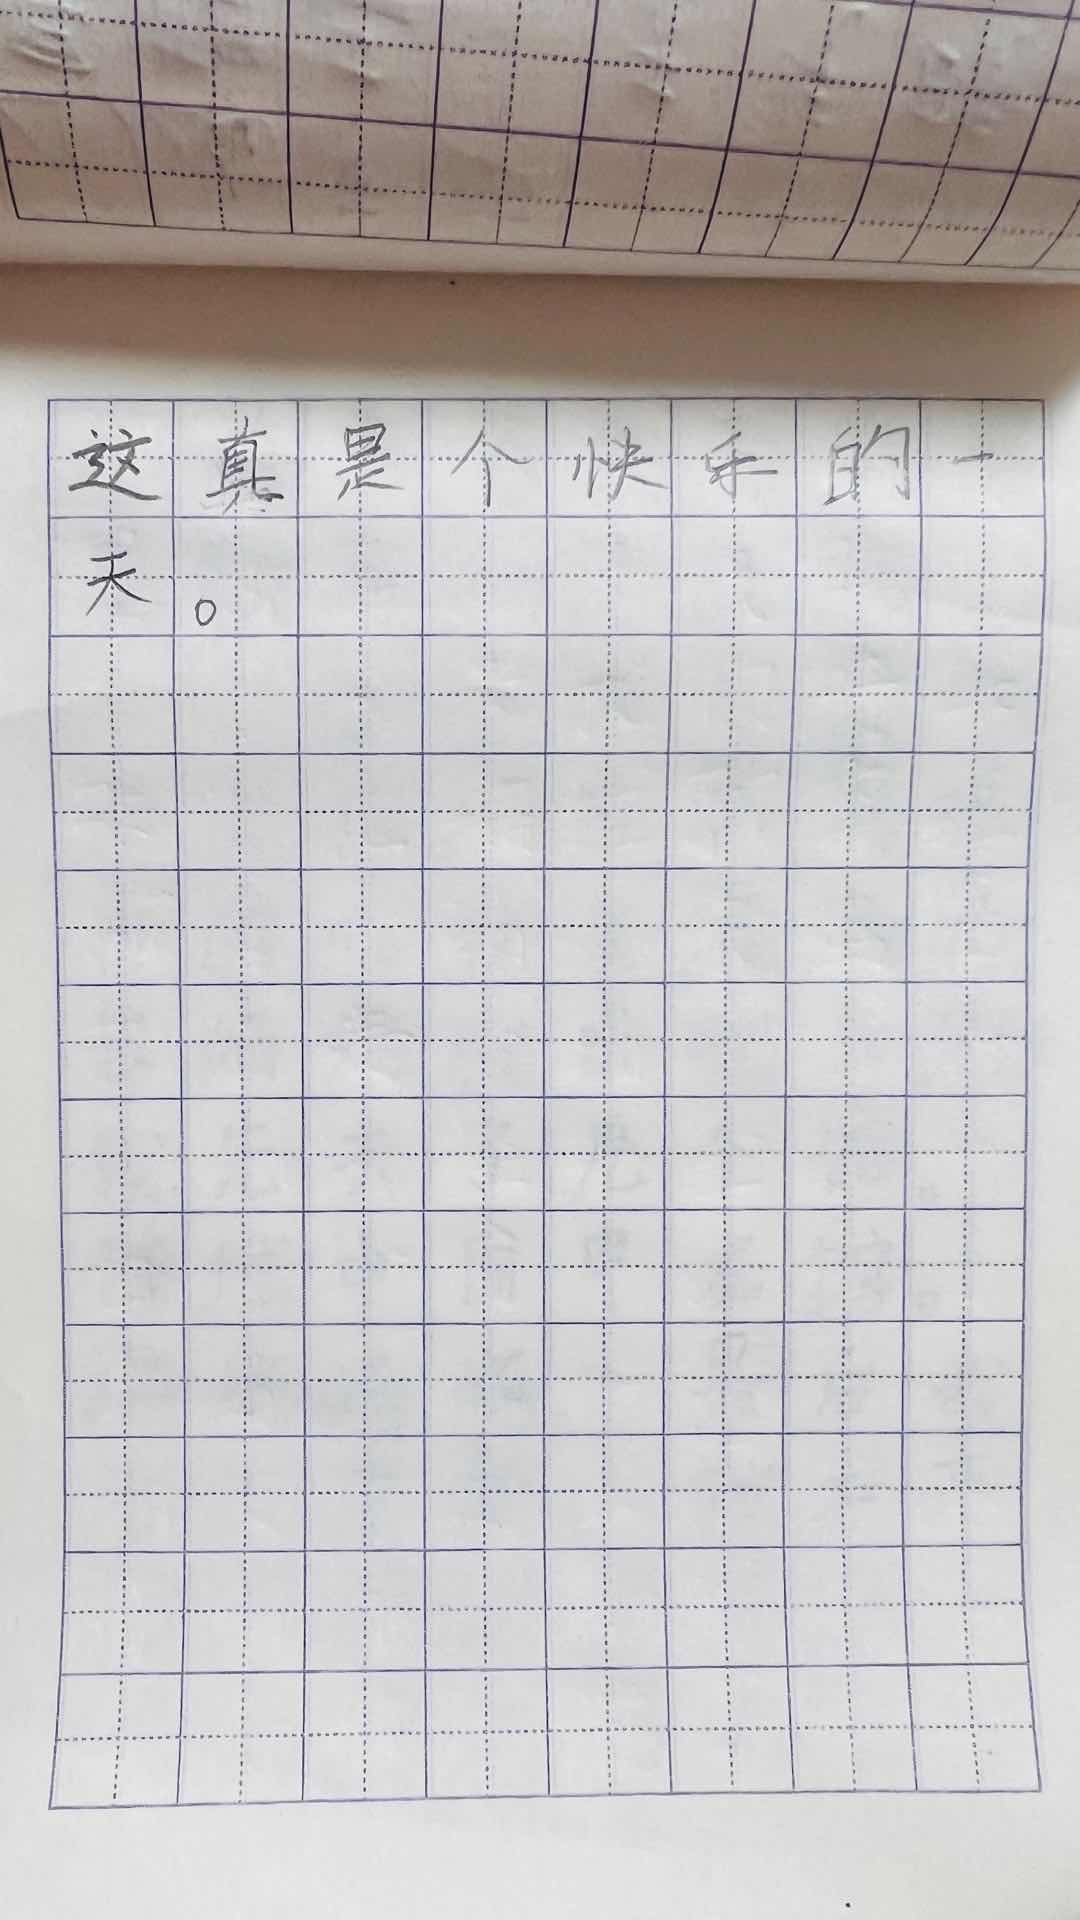 这真是个快乐的一
天。